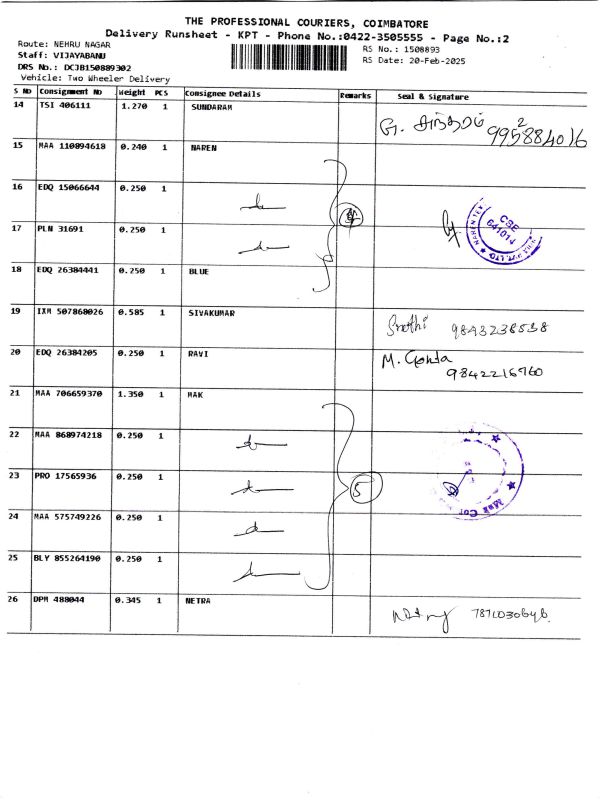 THE PROFESSIONAL COURIERS, COIMBATORE
Delivery Runsheet - KPT - Phone No.:0422-3505555 - Page No.:2
Route: NEHRU NAGAR
Staff: VIJAYABANU
DRS No.: DCJB150889302
Vehicle: Two Wheeler Delivery
RS No.: 1508893
RS Date: 20-Feb-2025
S NO Consignment NO Weight PCS Consignee Details Remarks Seal & Signature
14 TSI 406111 1.270 1 SUNDARAM
G. சுந்தரம் 9952884016
15 MAA 110894618 0.240 1 NAREN
16 EDQ 15066644 0.250 1
17 PLN 31691 0.250 1
CSE
641014
18 EDQ 26384441 0.250 1 BLUE
19 IXM 507868026 0.585 1 SIVAKUMAR
9843238538
20 EDQ 26384205 0.250 1 RAVI
M. 9842216760
21 MAA 706659370 1.350 1 MAK
22 MAA 868974218 0.250 1
23 PRO 17565936 0.250 1 5
24 MAA 575749226 0.250 1
25 BLY 855264190 0.250 1
26 DPM 488044 0.345 1 NETRA